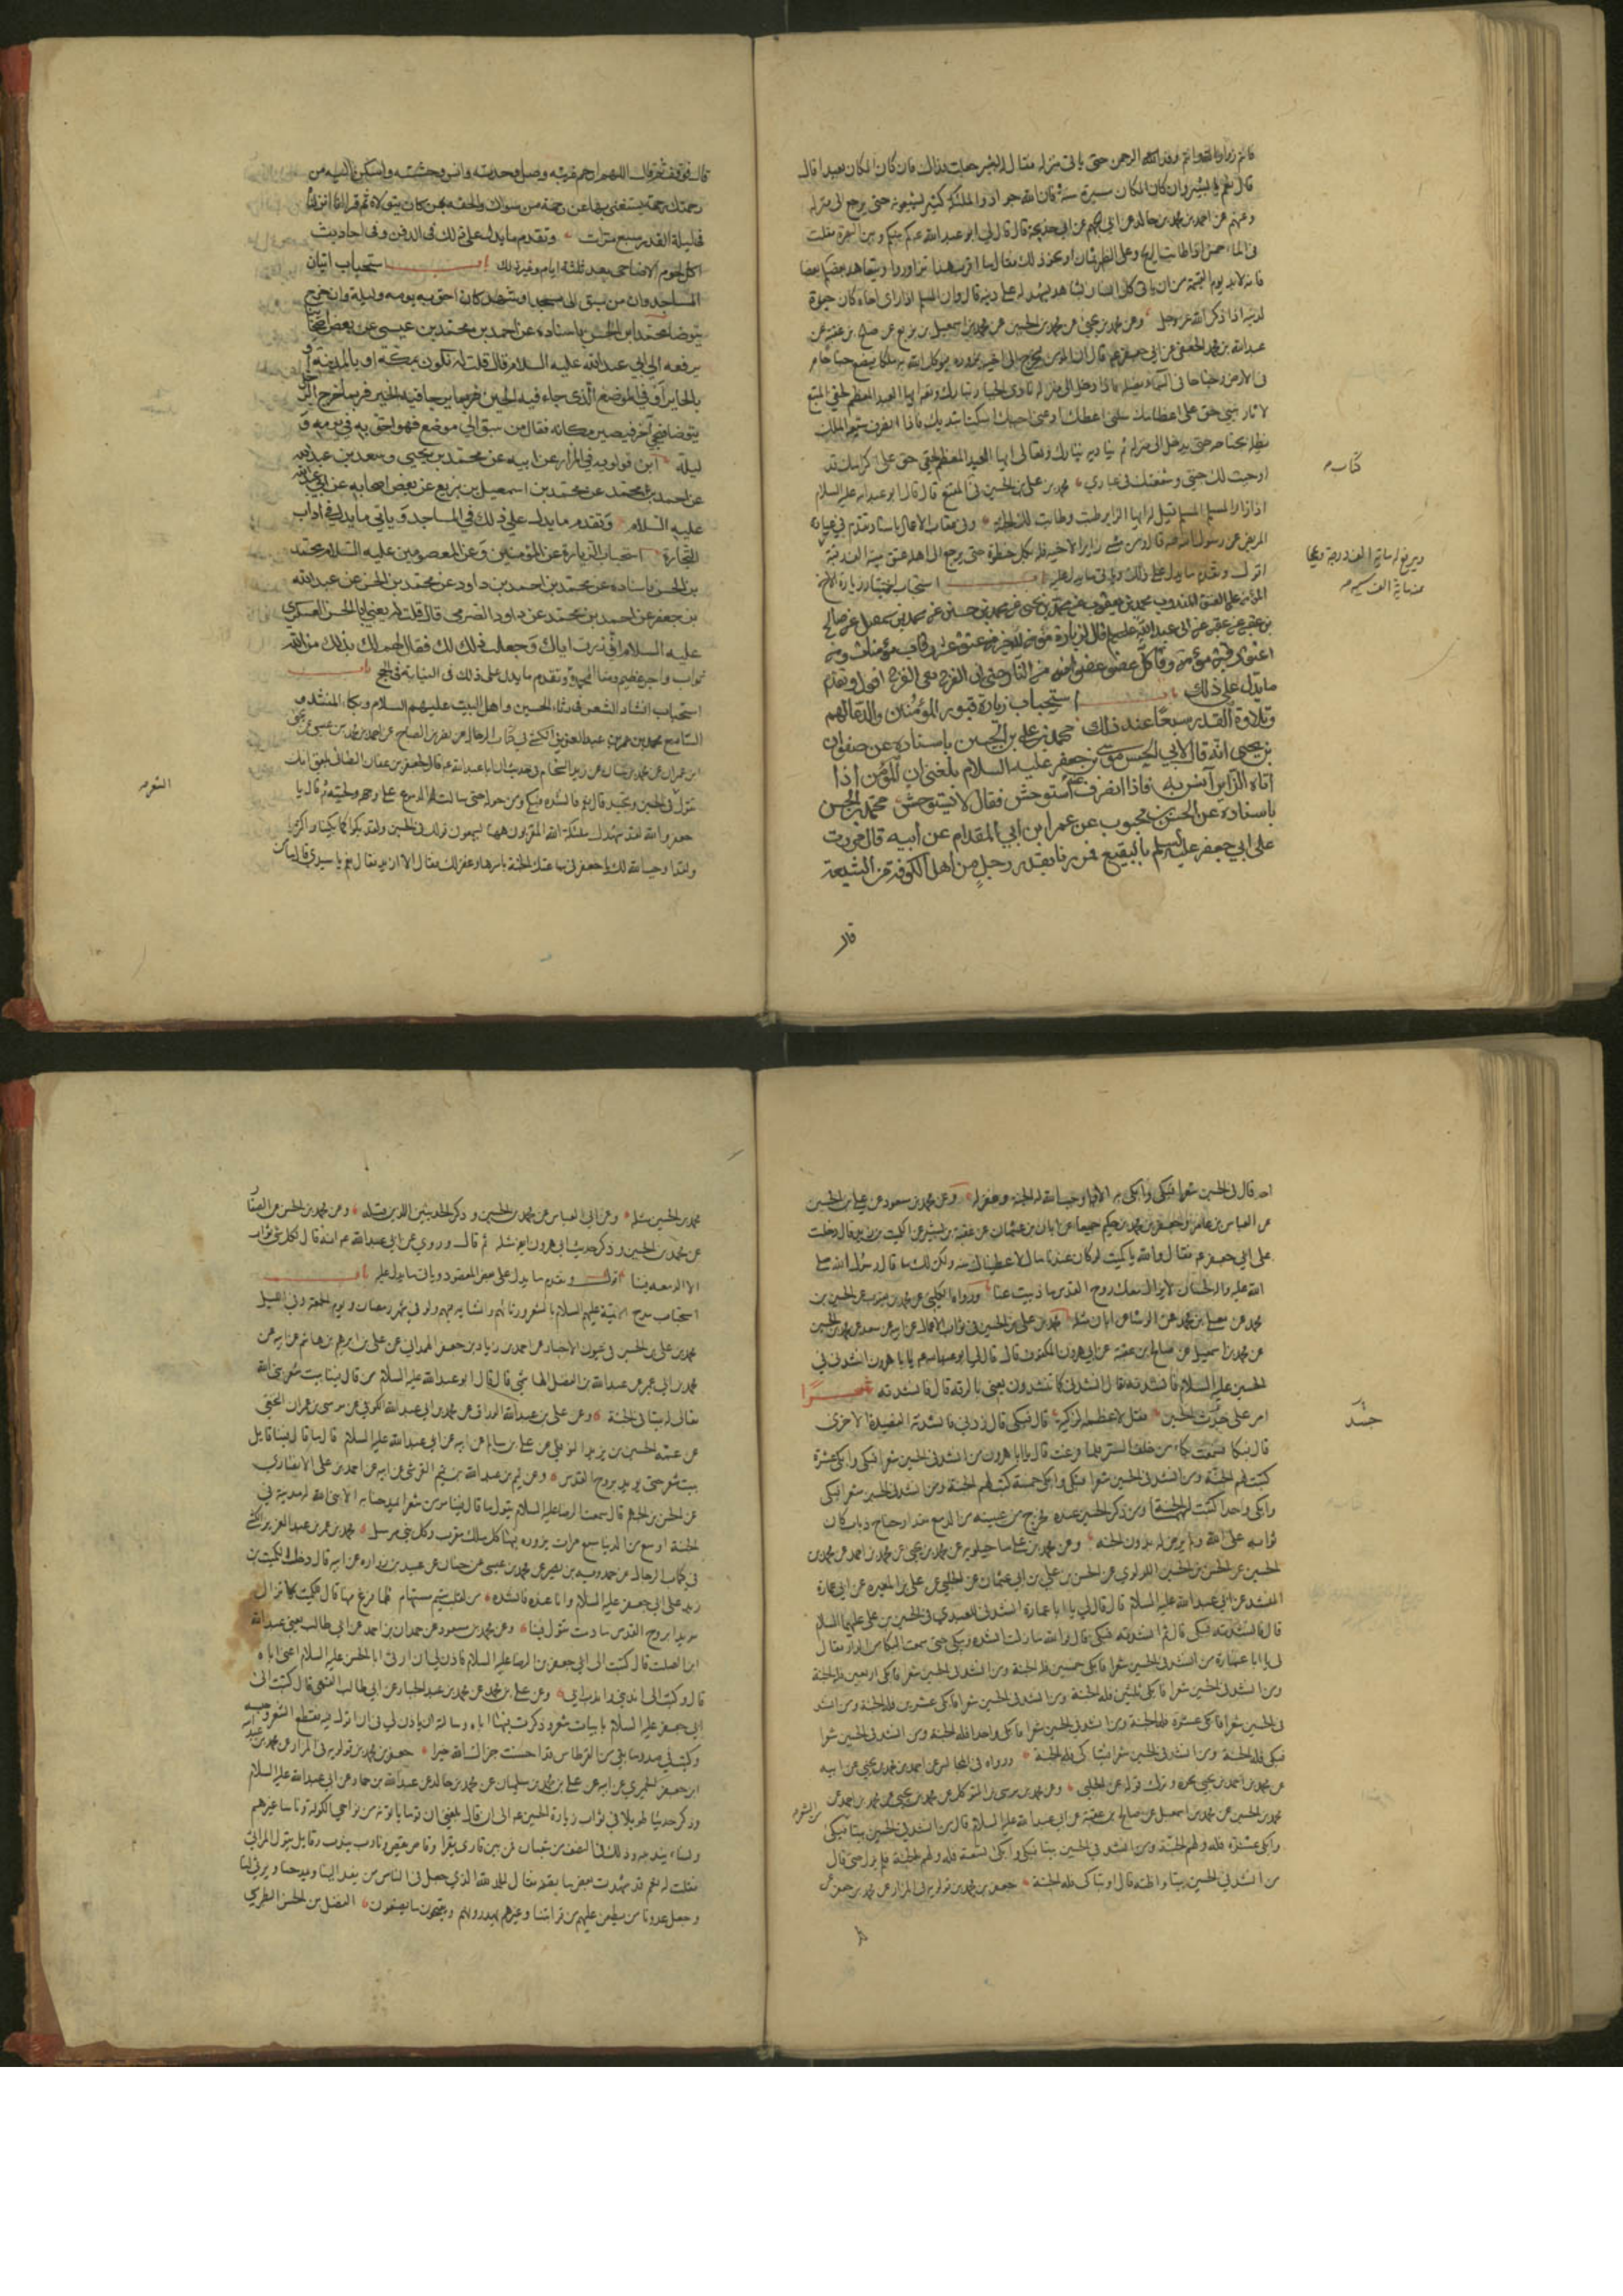 حتى ياتى منزله فقال له بشير جعلت فداك فان كان المكان بعيدا قال
قال نعم يا بشير وان كان المكان مسيرة سنة فان الله جواد والملئكة كثير يشيعونه حتى يرجع الى منزله
وعنهم عن احمد بن محمد بن خالد عن ابى الجهم عن ابى خديجة قال قال لى ابو عبد الله ع كم بينكم وبين البصرة فقلت
فى الماء خمس اذا طابت الريح وعلى الظهر ثمان او نحو ذلك فقال ما اقرب هذا تزاوروا ويتعاهد بعضكم بعضا
فانه لا بد يوم القيمة من ان ياتى كل انسان بشاهد يشهد له على دينه قال وان المسلم اذا راى اخاه كان حيوة
لدينه اذا ذكر الله عز وجل وعن محمد بن يحيى عن محمد بن الحسين عن محمد بن اسمعيل بن بزيع عن صالح بن عقبة عن
عبد الله بن محمد الجعفى عن ابى جعفر ع قال ان المؤمن ليخرج الى اخيه يزوره فيوكل الله به ملكا فيضع جناحا
فى الارض وجناحا فى السماء يظله فاذا دخل الى منزله نادى الجبار تبارك وتعالى ايها العبد المعظم لحقى المتبع
لاثار نبيى حق على اعظامك سلنى اعطك ادعنى اجبك اسكت ابتدئك فاذا انصرف شيعه الملك
يظله بجناحه حتى يدخل الى منزله ثم يناديه تبارك وتعالى ايها العبد المعظم لحقى حق على اكرامك قد
اوجبت لك جنتى وشفعتك فى عبادى محمد بن على بن الحسين فى المقنع قال قال ابو عبد الله عليه السلام
اذا زار المسلم المسلم قيل له ايها الزاير طبت وطابت لك الجنة وفى عقاب الاعمال باسناد تقدم فى عيادة
المريض عن رسول الله ص قال ومن مشى زايرا لاخيه فله بكل خطوة حتى يرجع الى اهله عتق مئة الف رقبة
اقول وتقدم ما يدل على ذلك وياتى ما يدل عليه باب استحباب اختيار زيارة الاخ
المؤمن على العتق المندوب محمد بن يعقوب عن محمد بن يحيى عن محمد بن حسين عن محمد بن اسمعيل عن صالح
بن عقبة عن عقبة عن ابى عبد الله عليه السلام قال لزيارة مؤمن فى الله خير من عتق عشر رقاب مؤمنات ومن
اعتق رقبة مؤمنة وقى كل عضو عضوا منه من النار حتى ان الفرج يقى الفرج اقول وتقدم
ما يدل على ذلك باب استحباب زيارة قبور المؤمنين والدعاء لهم
وتلاوة القدر سبعا عند ذلك محمد بن على بن الحسين باسناده عن صفوان
بن يحيى انه قال لابى الحسن موسى بن جعفر عليه السلام بلغنى ان المؤمن اذا
اتاه الزاير آنس به فاذا انصرف عنه استوحش فقال لا يستوحش محمد بن الحسن
باسناده عن الحسن بن محبوب عن عمر ابن ابى المقدام عن ابيه قال مررت
على ابى جعفر عليه السلم بالبقيع فمر بنا بقبر رجل من اهل الكوفة من الشيعة
قال
كتاب م
ويرفع له مائة الف درجة ويمحا
عنه مائة الف سيئة م
قال فوقف ثم قال اللهم ارحم غربته وصل وحدته وانس وحشته واسكن اليه من
رحمتك رحمة يستغنى بها عن رحمة من سواك والحقه بمن كان يتولاه ثم قرا انا انزلناه
فى ليلة القدر سبع مرات وتقدم ما يدل على ذلك فى الدفن وفى احاديث
اكل لحوم الاضاحى بعد ثلثة ايام وغير ذلك باب استحباب اتيان
المساجد وان من سبق الى مسجد او مشهد كان احق به يومه وليلته وان خرج
يتوضا محمد ابن الحسن باسناده عن احمد بن محمد بن عيسى عن بعض اصحابنا
يرفعه الى ابى عبد الله عليه السلام قال قلت له نكون بمكة او بالمدينة او
بالحاير او فى المواضع الذى جاء فيه الخير فربما خرج الرجل
يتوضا فيجئ آخر فيصير مكانه فقال من سبق الى موضع فهو احق به فى يومه و
ليلته ابن قولويه فى المزار عن ابيه عن محمد بن يحيى وسعد بن عبد الله
عن احمد بن محمد عن محمد بن اسمعيل بن بزيع عن بعض اصحابه عن ابى عبد الله
عليه السلام وتقدم ما يدل على ذلك فى المساجد وياتى ما يدل فى اداب
التجارة استحباب الزيارة عن المؤمنين وعن المعصومين عليه السلام محمد
بن الحسن باسناده عن محمد بن احمد بن داود عن محمد بن الحسن عن عبد الله
بن جعفر عن احمد بن محمد عن داود الصرمى قال قلت له يعنى ابا الحسن العسكرى
عليه السلام انى زرت اباك وجعلت ذلك لك فقال لك بذلك من الله
ثواب واجر عظيم ومنا المحمدة وتقدم ما يدل على ذلك فى النيابة فى الحج باب
استحباب انشاد الشعر فى رثاء الحسين واهل البيت عليهم السلام وبكاء المنشد و
السامع محمد بن عمر بن عبد العزيز الكشى فى كتاب الرجال عن نصر بن الصباح عن احمد بن محمد بن عيسى عن يحيى
ابن عمران عن محمد بن سنان عن زيد الشحام فى حديث ان ابا عبد الله ع قال لجعفر بن عفان الطائى بلغنى انك
تقول فى الحسين وتجيد قال نعم فانشده فبكى ومن حوله حتى سالت الدموع على وجهه ولحيته ثم قال يا
جعفر والله لقد شهدك ملئكة الله المقربون ههنا يسمعون قولك فى الحسين ولقد بكوا كما بكينا واكثر
ولقد اوجب الله لك يا جعفر فى ساعتك الجنة باسرها وغفر لك فقال الا ازيدك فقال نعم يا سيدى قال ما من
الشعر م
احد قال فى الحسين شعرا فبكى وابكى به الا اوجب الله له الجنة وغفر له وعن محمد بن مسعود عن على بن الحسين
عن العباس بن عامر وجعفر بن محمد بن حكيم جميعا عن ابان بن عثمان عن عقبة بن بشير عن الكميت بن زيد قال دخلت
على ابى جعفر ع فقال والله يا كميت لو كان عندنا مال لاعطيناك منه ولكن لك ما قال رسول الله صلى
الله عليه واله لحسان لا يزال معك روح القدس ما ذببت عنا ورواه الكلينى عن محمد بن يعقوب عن الحسين بن
محمد عن معلى بن محمد عن الوشا عن ابان مثله محمد بن على بن الحسين فى ثواب الاعمال عن ابيه عن سعد عن محمد بن الحسين
عن محمد بن اسمعيل عن صالح بن عقبة عن ابى هرون المكفوف قال قال لى ابو عبد الله ع يا با هرون انشدنى فى
الحسين عليه السلام فانشدته فقال انشدنى كما تنشدون يعنى بالرقة قال فانشدته شعرا
امرر على جدث الحسين فقل لاعظمه الزكية قال فبكى قال زدنى فانشدته القصيدة الاخرى
قال فبكا فسمعت بكاء من خلف الستر فلما فرغت قال يا ابا هرون من انشد فى الحسين شعرا فبكى وابكى عشرة
كتبت لهم الجنة ومن انشد فى الحسين شعرا فبكى وابكى خمسة كتبت لهم الجنة ومن انشد فى الحسين شعرا فبكى
وابكى واحدا كتبت لهما الجنة ومن ذكر الحسين عنده فخرج من عينيه من الدمع مقدار جناح ذباب كان
ثوابه على الله ولم يرض له بدون الجنة وعن محمد بن على ماجيلويه عن محمد بن يحيى عن محمد بن احمد عن محمد بن
الحسين عن الحسن بن الحسين اللولوى عن الحسن بن على بن ابى عثمان عن على بن المغيرة عن ابى عمارة
المنشد عن ابى عبد الله عليه السلام قال قال لى يا ابا عمارة انشدنى للعبدى فى الحسين بن على عليهما السلام
قال فانشدته فبكى قال ثم انشدته فبكى قال فوالله ما زلت انشده ويبكى حتى سمعت البكا من الدار فقال
لى يا ابا عمارة من انشد فى الحسين شعرا فابكى خمسين فله الجنة ومن انشد فى الحسين شعرا فابكى اربعين فله الجنة
ومن انشد فى الحسين شعرا فابكى ثلثين فله الجنة ومن انشد فى الحسين شعرا فابكى عشرين فله الجنة ومن انشد
فى الحسين شعرا فابكى عشرة فله الجنة ومن انشد فى الحسين شعرا فابكى واحدا فله الجنة ومن انشد فى الحسين شعرا
فبكى فله الجنة ومن انشد فى الحسين شعرا فتباكى فله الجنة ورواه فى المجالس عن احمد بن محمد بن يحيى عن ابيه
عن محمد بن احمد بن يحيى نحوه وعن محمد بن موسى بن المتوكل عن محمد بن يحيى عن محمد بن احمد عن
محمد بن الحسين عن محمد بن اسمعيل عن صالح بن عقبة عن ابى عبد الله عليه السلام قال من انشد فى الحسين بيتا فبكى
وابكى عشرة فله ولهم الجنة ومن انشد فى الحسين بيتا فبكى وابكى تسعة فله ولهم الجنة فلم يزل حتى قال
من انشد فى الحسين بيتا واظنه قال او تباكى فله الجنة جعفر بن محمد بن قولويه فى المزار عن محمد بن جعفر عن
من الشعر م
محمد بن الحسين مثله وعن ابى العباس عن محمد بن الحسين وذكر الحديثين اللذين قبله وعن محمد بن الحسن عن الصفار
عن محمد بن الحسين وذكر حديث ابى هرون ايضا مثله ثم قال وروى عن ابى عبد الله ع انه قال لكل شئ ثواب
الا الدمعة فينا اقول وتقدم ما يدل على بعض المقصود وياتى ما يدل عليه باب
استحباب مدح الائمة عليهم السلام بالشعر ورثائهم وانشاده فيهم ولو فى شهر رمضان ويوم الجمعة وفى الليل
محمد بن على بن الحسين فى عيون الاخبار عن احمد بن زياد بن جعفر الهمدانى عن على بن ابرهيم بن هاشم عن ابيه عن
محمد بن ابى عمير عن عبد الله بن الفضل الهاشمى قال قال ابو عبد الله عليه السلام من قال فينا بيت شعر بنى الله
تعالى له بيتا فى الجنة وعن على بن عبد الله الوراق عن محمد بن ابى عبد الله الكوفى عن موسى بن عمران النخعى
عن عمه الحسين بن يزيد النوفلى عن على بن سالم عن ابيه عن ابى عبد الله عليه السلام قال ما قال فينا قايل
بيت شعر حتى يويد بروح القدس وعن تميم بن عبد الله بن تميم القرشى عن ابيه عن احمد بن على الانصارى
عن الحسن بن الجهم قال سمعت الرضا عليه السلام يقول ما قال فينا مومن شعرا يمدحنا به الا بنى الله له مدينة فى
الجنة اوسع من الدنيا سبع مرات يزوره فيها كل ملك مقرب وكل نبى مرسل محمد بن عمر بن عبد العزيز الكشى
فى كتاب الرجال عن حمدويه بن نصير عن محمد بن عيسى عن حنان عن عبيد بن زراره عن ابيه قال دخل الكميت بن
زيد على ابى جعفر عليه السلام وانا عنده فانشده من لقلب متيم مستهام فلما فرغ منها قال للكميت لا تزال
مويدا بروح القدس ما دمت تقول فينا وعن محمد بن مسعود عن حمدان بن احمد عن ابى طالب يعنى عبد الله
ابن الصلت قال كتبت الى ابى جعفر بن الرضا عليه السلام فاذن لى ان ارثى ابا الحسن عليه السلام اعنى اباه
قال وكتب الى اندبنى واندب ابى وعن على بن محمد عن محمد بن عبد الجبار عن ابى طالب القمى قال كتبت الى
ابى جعفر عليه السلام بابيات شعر وذكرت فيها اباه وسالته ان ياذن لى فى ان اقول فيه فقطع الشعر وحبسه
وكتب فى صدر ما بقى من القرطاس قد احسنت جزاك الله خيرا جعفر بن محمد بن قولويه فى المزار عن محمد بن عبد الله
ابن جعفر الحميرى عن ابيه عن على بن محمد بن سليمان عن محمد بن خالد عن عبد الله بن حماد عن ابى عبد الله عليه السلام
وذكر حديثا طويلا فى ثواب زيارة الحسين ع الى ان قال بلغنى ان قوما ياتونه من نواحى الكوفة وناسا غيرهم
ونساء يندبنه وذلك فى النصف من شعبان فمن بين قارى يقرا وقاص يقص ونادب يندب وقايل يقول المراثى
فقلت له نعم قد شهدت بعض ما تصف فقال الحمد لله الذى جعل فى الناس من يفد الينا ويمدحنا ويرثى لنا
وجعل عدونا من يطعن عليهم من قرابتنا وغيرهم يهددونهم ويقبحون ما يصنعون الفضل بن الحسن الطبرسى